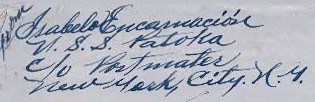 Isabelo Encarnación
U. S. S. Patoka
c/o Postmater
New York, City. N.Y.